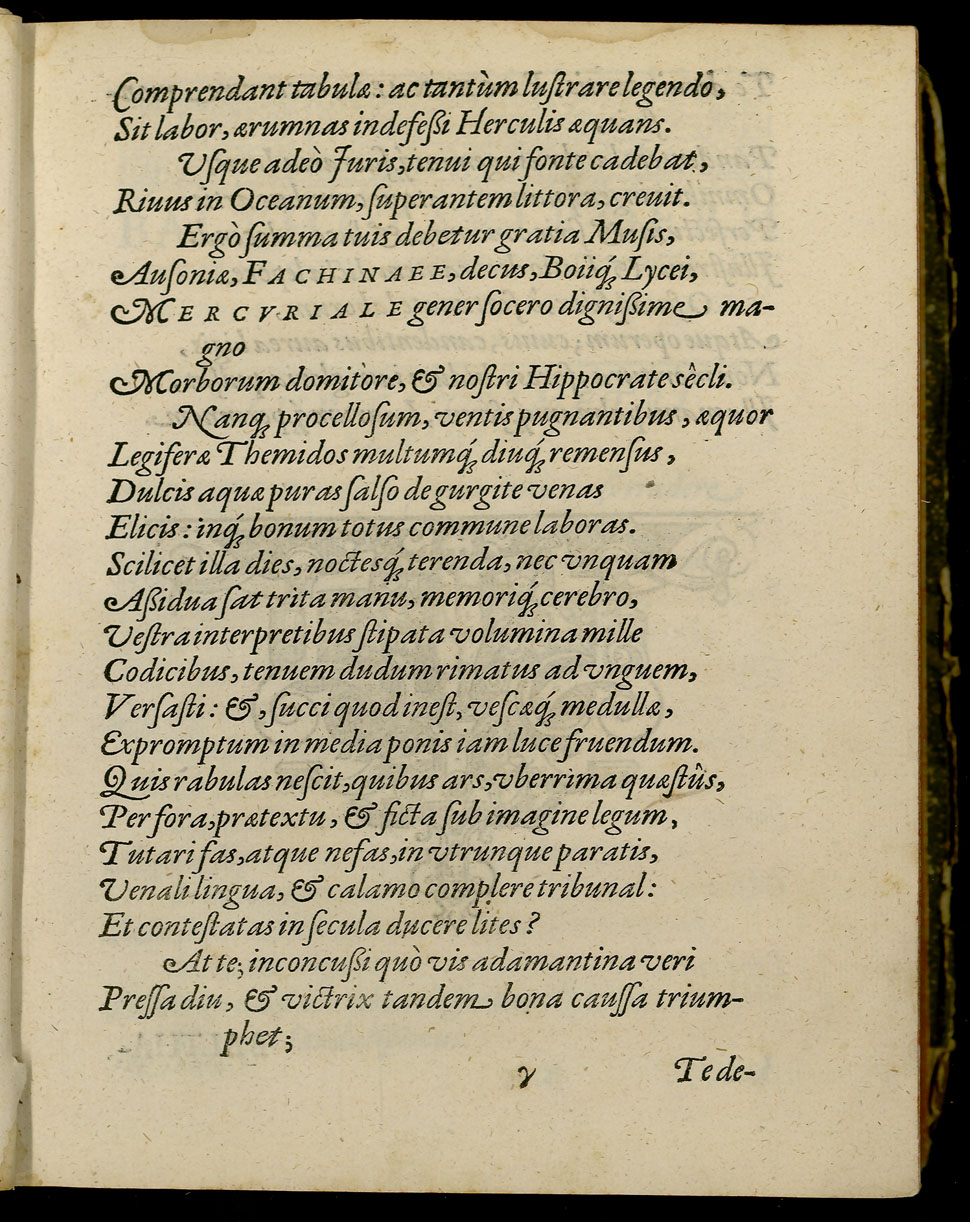 Comprendant tabulæ: ac tantùm luſtrare legendo,
Sit labor, ærumnas indefeßi Herculis æquans.
Uſque adeò Juris, tenui qui fonte cadebat,
Riuus in Oceanum, ſuperantem littora, creuit.
Ergò ſumma tuis debetur gratia Muſis,
Auſoniæ, FACHINAEE, decus, Boiiq́; Lycei,
MERCVRIALE gener ſocero dignißime ma-
gno
Morborum domitore, & noſtri Hippocrate sêcli.
Nanq; procelloſum, ventis pugnantibus, æquor
Legiferæ Themidos multumq́; diuq́; remenſus,
Dulcis aquæ puras ſalſo de gurgite venas
Elicis: inq́; bonum totus commune laboras.
Scilicet illa dies, noctesq́; terenda, nec vnquam
Aßidua ſat trita manu, memoriq́; cerebro,
Veſtra interpretibus ſtipata volumina mille
Codicibus, tenuem dudum rimatus ad vnguem,
Verſaſti: &, ſucci quod ineſt, veſcæq́; medullæ,
Expromptum in media ponis iam luce fruendum.
Quis rabulas neſcit, quibus ars, vberrima quæſtûs,
Per fora, prætextu, & ficta ſub imagine legum,
Tutari fas, atque nefas, in vtrunque paratis,
Uenali lingua, & calamo complere tribunal:
Et conteſtatas in ſecula ducere lites?
At te; inconcußi quò vis adamantina veri
Preſſa diu, & victrix tandem bona cauſſa trium-
phet;
γ Te de-